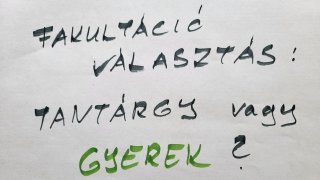 FAKULTÁCIÓ
VÁLASZTÁS:
TANTÁRGY vagy
GYEREK?